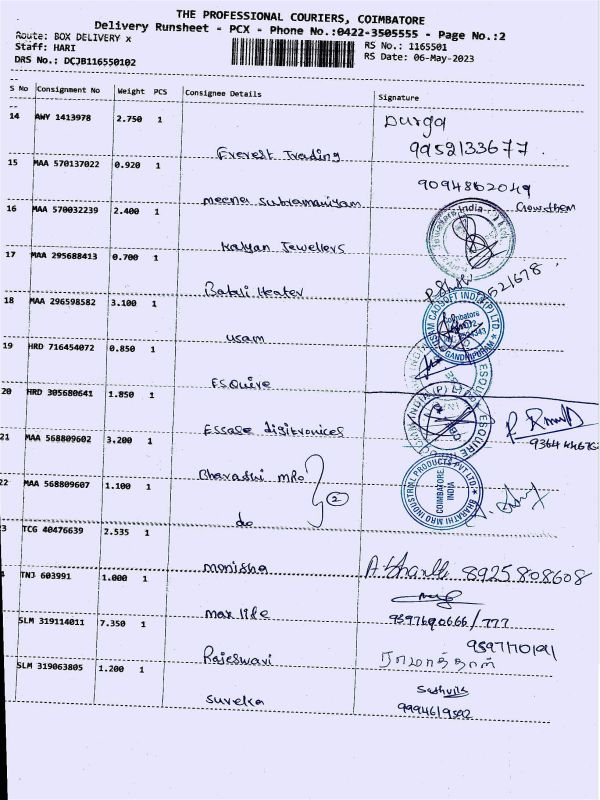 THE PROFESSIONAL COURIERS, COIMBATORE
Delivery Runsheet - PCX - Phone No.:0422-3505555 - Page No.:2
Route: BOX DELIVERY x
Staff: HARI
DRS No.: DCJB116550102
RS No.: 1165501
RS Date: 06-May-2023
S No Consignment No Weight PCS Consignee Details Signature
14 AWY 1413978 2.750 1 Durga
Everest Trading 9952133677
15 MAA 570137022 0.920 1
meena subramaniyam 9094862049
16 MAA 570032239 2.400 1
Kalyan Jewellers
17 MAA 295688413 0.700 1
Heater 521678
18 MAA 296598582 3.100 1
usam
USAM CADSOFT INDIA (P) LTD.
Coimbatore
GANDHIPURAM
19 HRD 716454072 0.850 1
ESQuire
ESQUIRE
20 HRD 305680641 1.850 1
Essae digitronices
21 MAA 568809602 3.200 1
Bharathi MRO 2
22 MAA 568809607 1.100 1
do
BHARATHI MRO INDUSTRIAL PRODUCTS PVT LTD.
COIMBATORE
INDIA
3 TCG 40476639 2.535 1
monisha 8925808608
TNJ 603991 1.000 1
max life 9597690666/777
SLM 319114011 7.350 1
Rajeswari ராமாத்தாள்
SLM 319063805 1.200 1
suveka